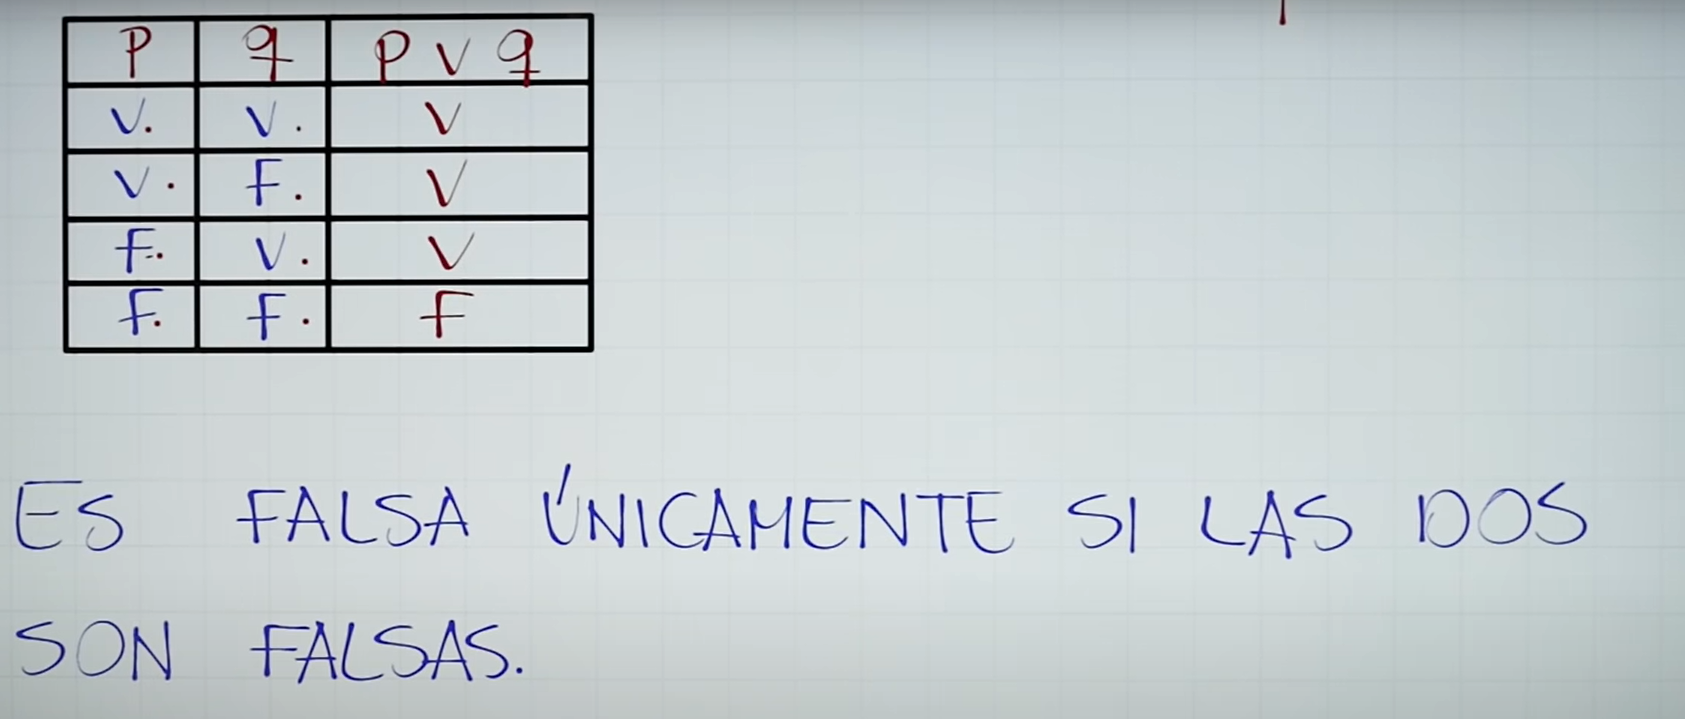 p q p ∨ q
V. V. V
V. F. V
F. V. V
F. F. F
ES FALSA ÚNICAMENTE SI LAS DOS
SON FALSAS.